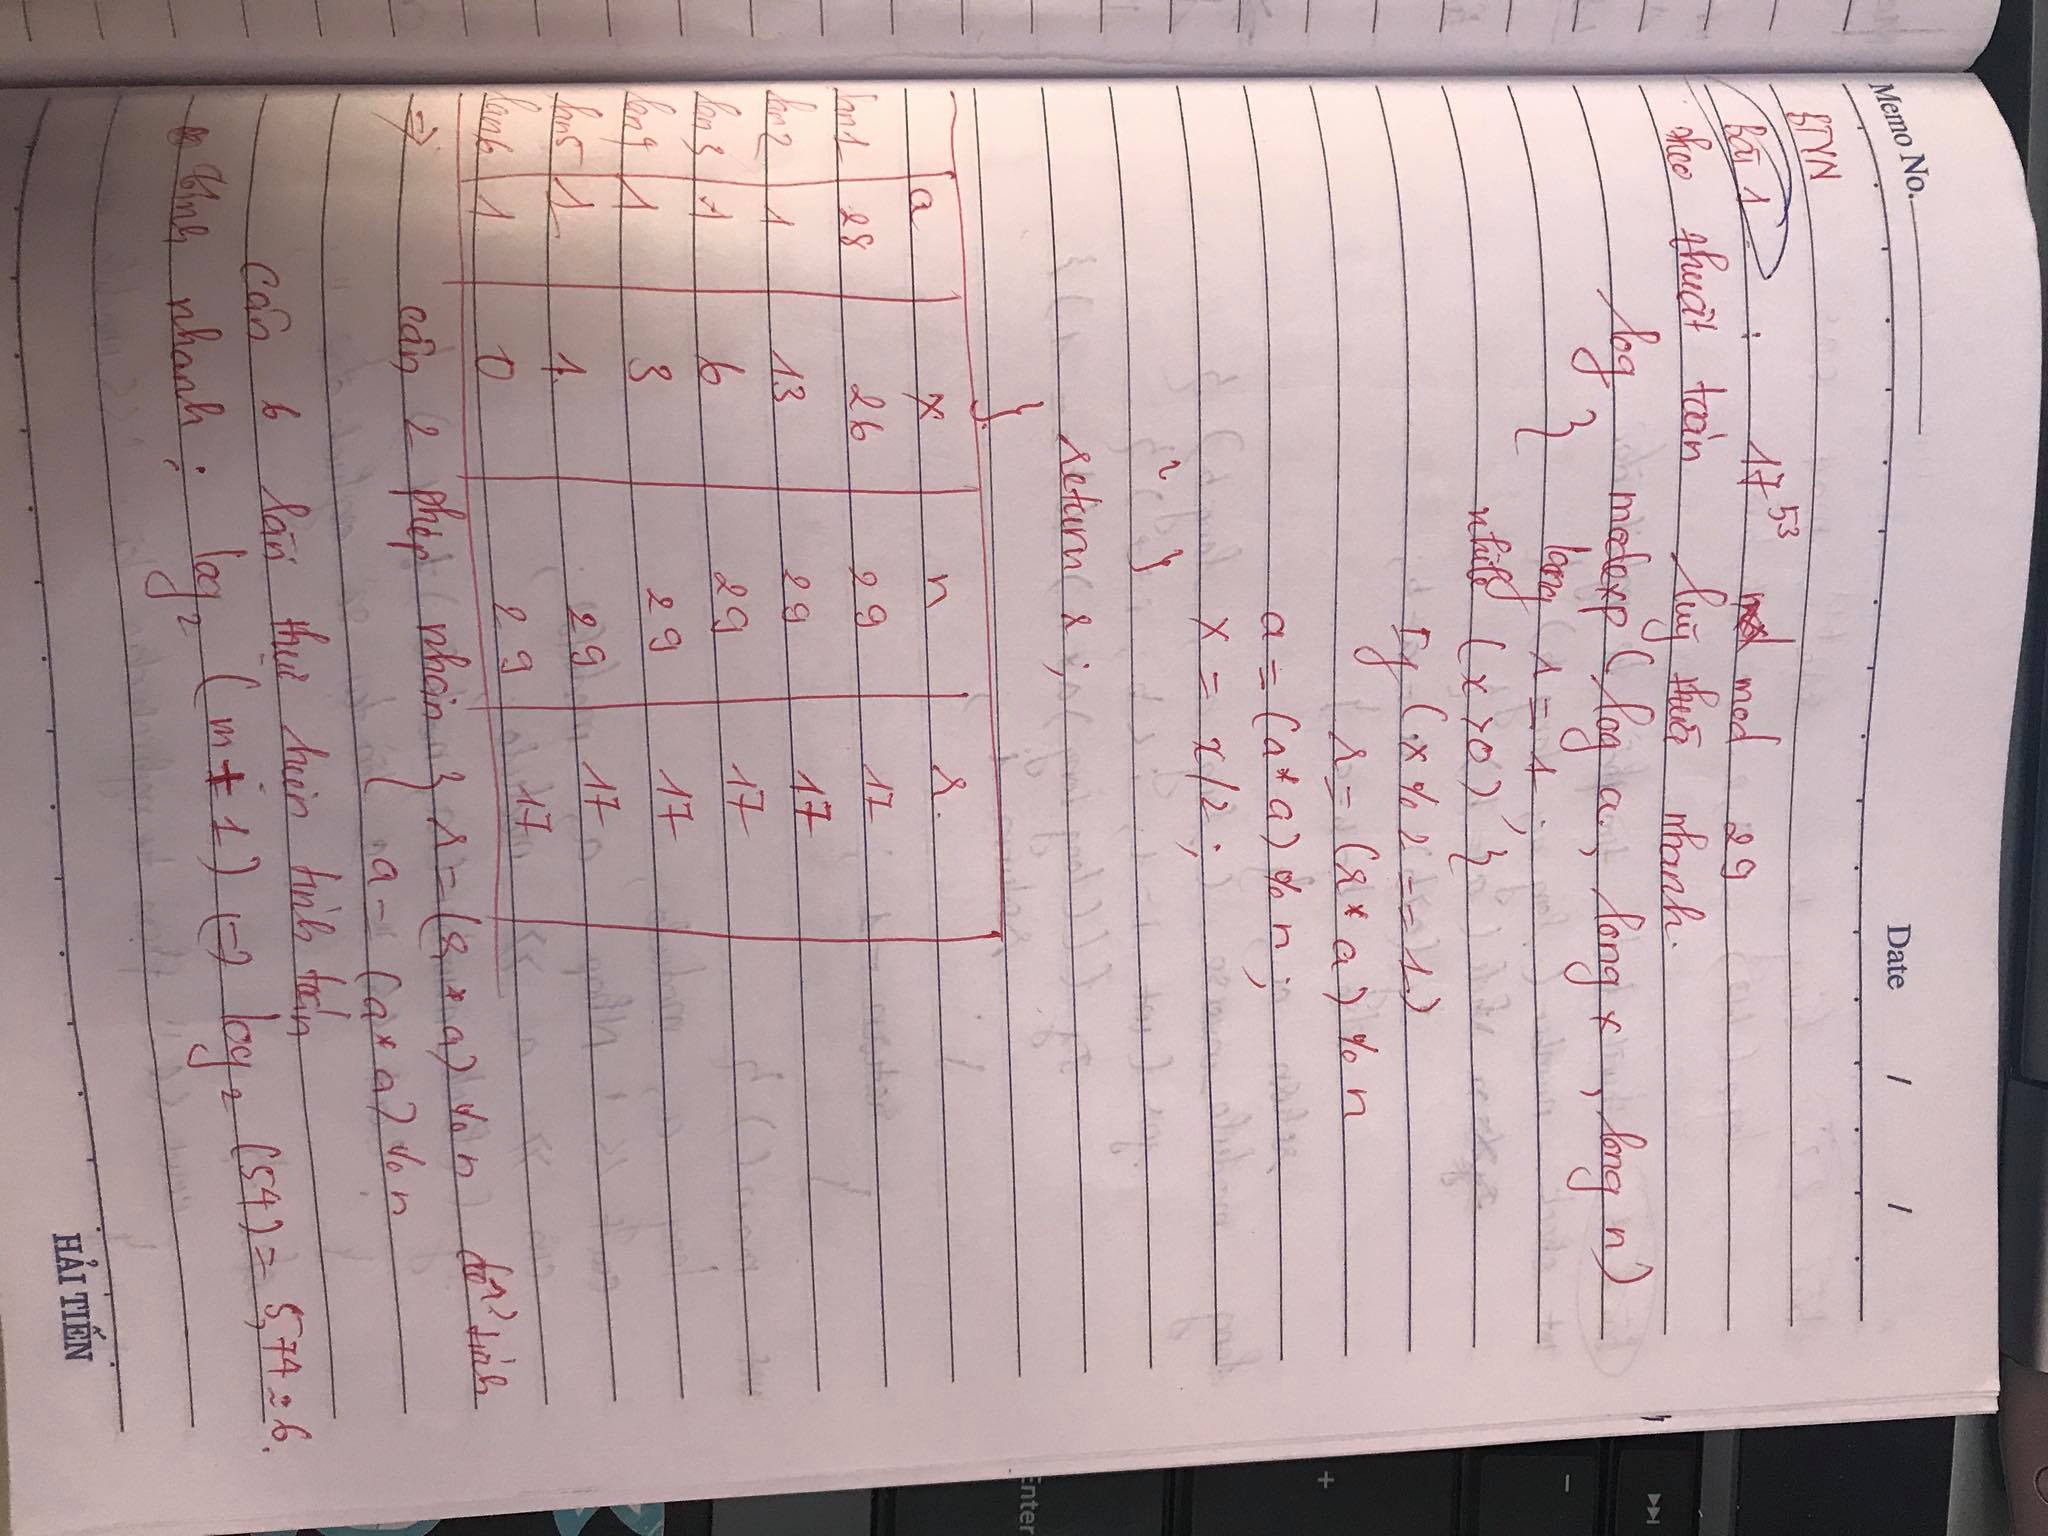 Memo No.
Date / /
BTVN
Bài 1 : 17^53 mod 29
theo thuật toán luỹ thừa nhanh.
log modexp (log a, long x, long n)
{ long r = 1
while (x > 0) {
If (x % 2 == 1)
r = (r * a) % n
a = (a * a) % n;
x = x/2;
}
return r;
}
a x n r
lần 1 28 26 29 17
lần 2 1 13 29 17
lần 3 1 6 29 17
lần 4 1 3 29 17
lần 5 1 1 29 17
lần 6 1 0 29 17
=> cần 2 phép nhân { r = (r * a) % n
a = (a * a) % n
cần 6 lần thực hiện tính toán
tính nhanh : log2 (m + 1) (=) log2 (54) = 5,74 ≈ 6.
HẢI TIẾN
Enter
+
-